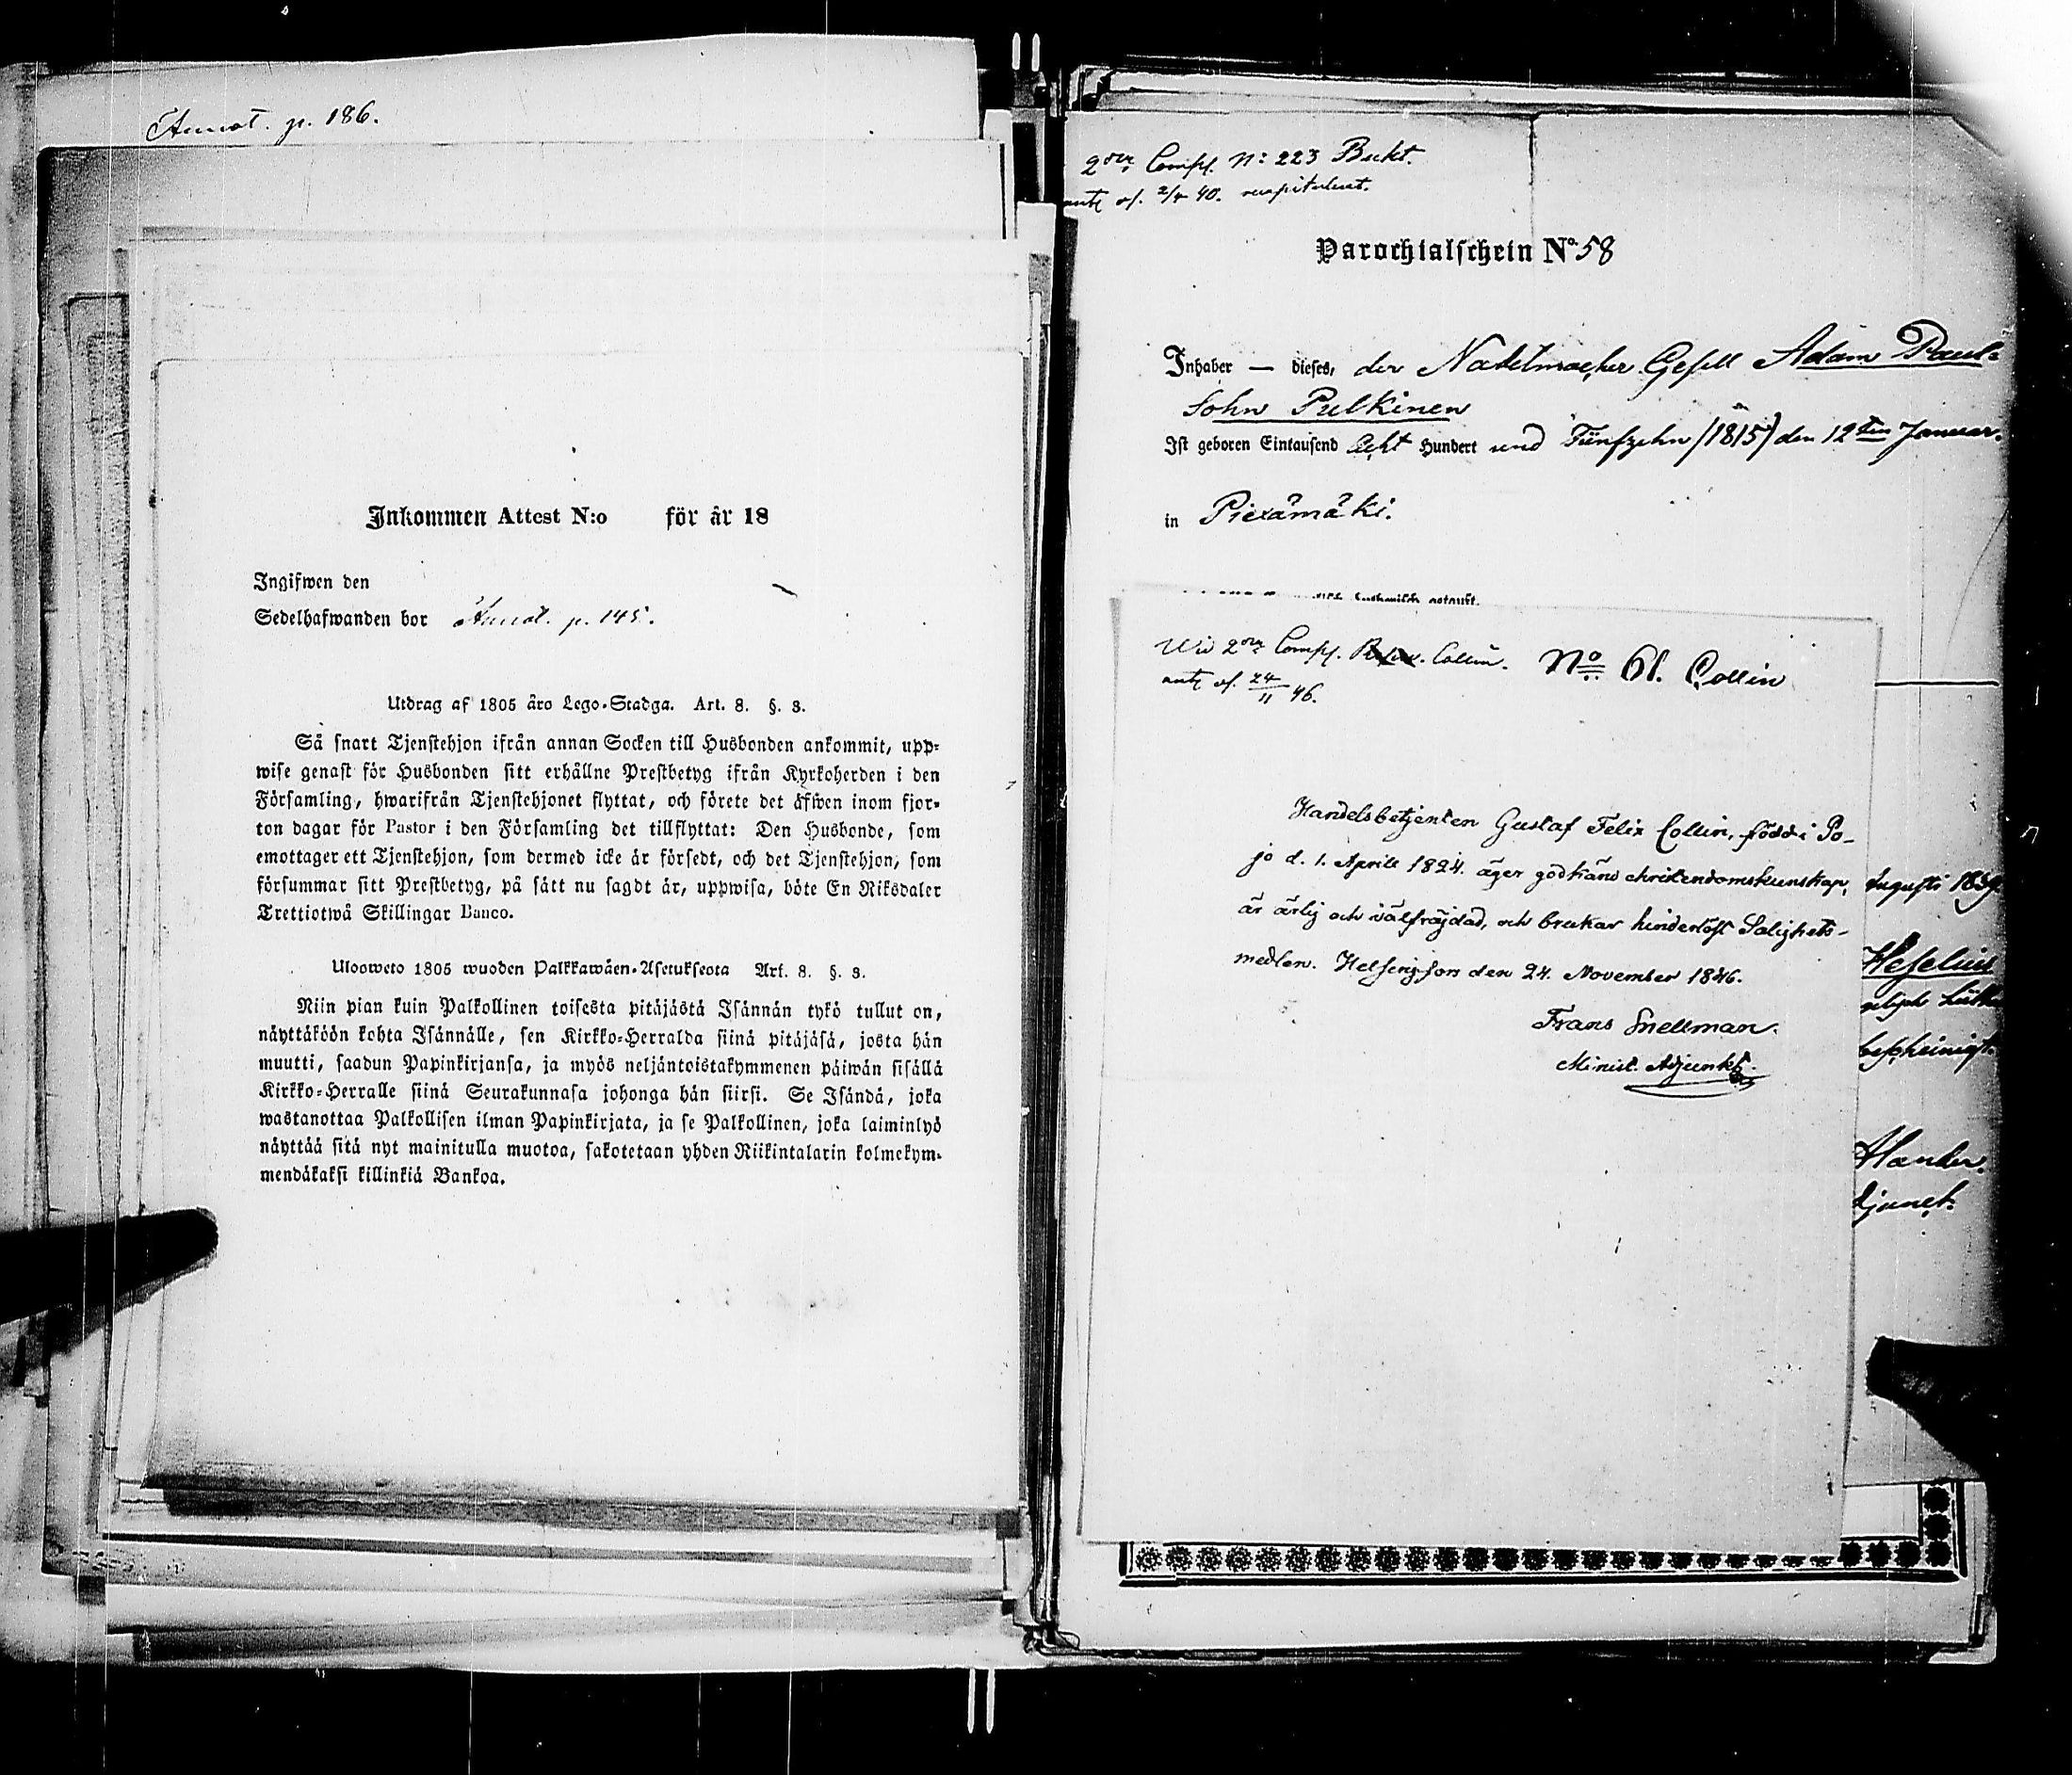 Annot. p. 186.
Inkommen Attest N:o för år 18
Ingifwen den
Sedelhafwanden bor Annot. p. 145.
Utdrag af 1805 åro Lego-Stadga. Art. 8. §. 3.
Så snart Tjenstehjon ifrån annan Socken till Husbonden ankommit, upp-
wise genast för Husbonden sitt erhållne Prestbetyg ifrån Kyrkoherden i den
Församling, hwarifrån Tjenstehjonet flyttat, och förete det äfwen inom fjor-
ton dagar för Pastor i den Församling det tillflyttat: Den Husbonde, som
emottager ett Tjenstehjon, som dermed icke är försedt, och det Tjenstehjon, som
försummar sitt Prestbetyg, på sätt nu sagdt är, uppwisa, böte En Riksdaler
Trettiotwå Skillingar Banco.
Uloosweto 1805 wuoden Palkkawäen-Asetuksesta Art. 8. §. 3.
Niin pian kuin Palkollinen toisesta pitäjästä Isännän tykö tullut on,
näyttäköön kohta Isännälle, sen Kirkko-Herralda siinä pitäjäsä, josta hän
muutti, saadun Papinkirjansa, ja myös neljäntoistakymmenen päiwän sisällä
Kirkko-Herralle siinä Seurakunnasa johonga hän siirsi. Se Isändä, joka
wastanottaa Palkollisen ilman Papinkirjata, ja se Palkollinen, joka laiminlyö
näyttää sitä nyt mainitulla muotoa, sakotetaan yhden Riikintalarin kolmekym-
mendäkaksi killinkiä Bankoa.
2dra Compl. N: 223 Bukt.
Parochialschein No 58
Inhaber — dieses, der Nadelmacher Gesell Adam Paul-
Sohn Pulkinen
Ist geboren Eintausend Acht Hundert und Fünfzehn (1815) den 12ten Januar.
in Piexämäki.
Wid 2dra Compl. Collin. No 61. Collin
24/11 46.
Handelsbetjenten Gustaf Felix Collin, född i Po-
jo d. 1. Aprile 1824. äger godkänd christendomskunskap,
är ärlig och välfräjdad, och brukar hinderlöst Salighets-
medlen. Helsingfors den 24. November 1846.
Frans Snellman.
Minist. Adjunkt.
Augusti 1839
Heselius
bescheinigt.
djunct.